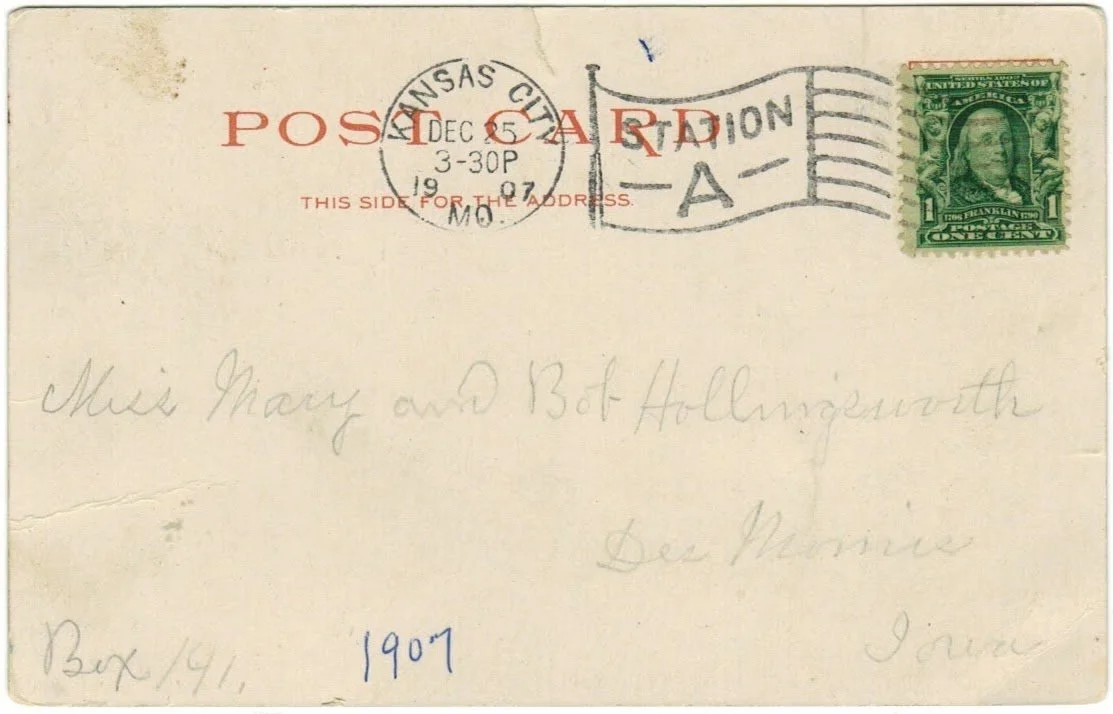 POST CARD
THIS SIDE FOR THE ADDRESS.
KANSAS CITY
DEC 25
3-30P
1907
MO.
STATION
A
SERIES 1902
UNITED STATES OF
AMERICA
1 1706 FRANKLIN 1790 1
POSTAGE
ONE CENT
Miss Mary and Bob Hollingsworth
Des Moines
Iowa
Box 191.
1907